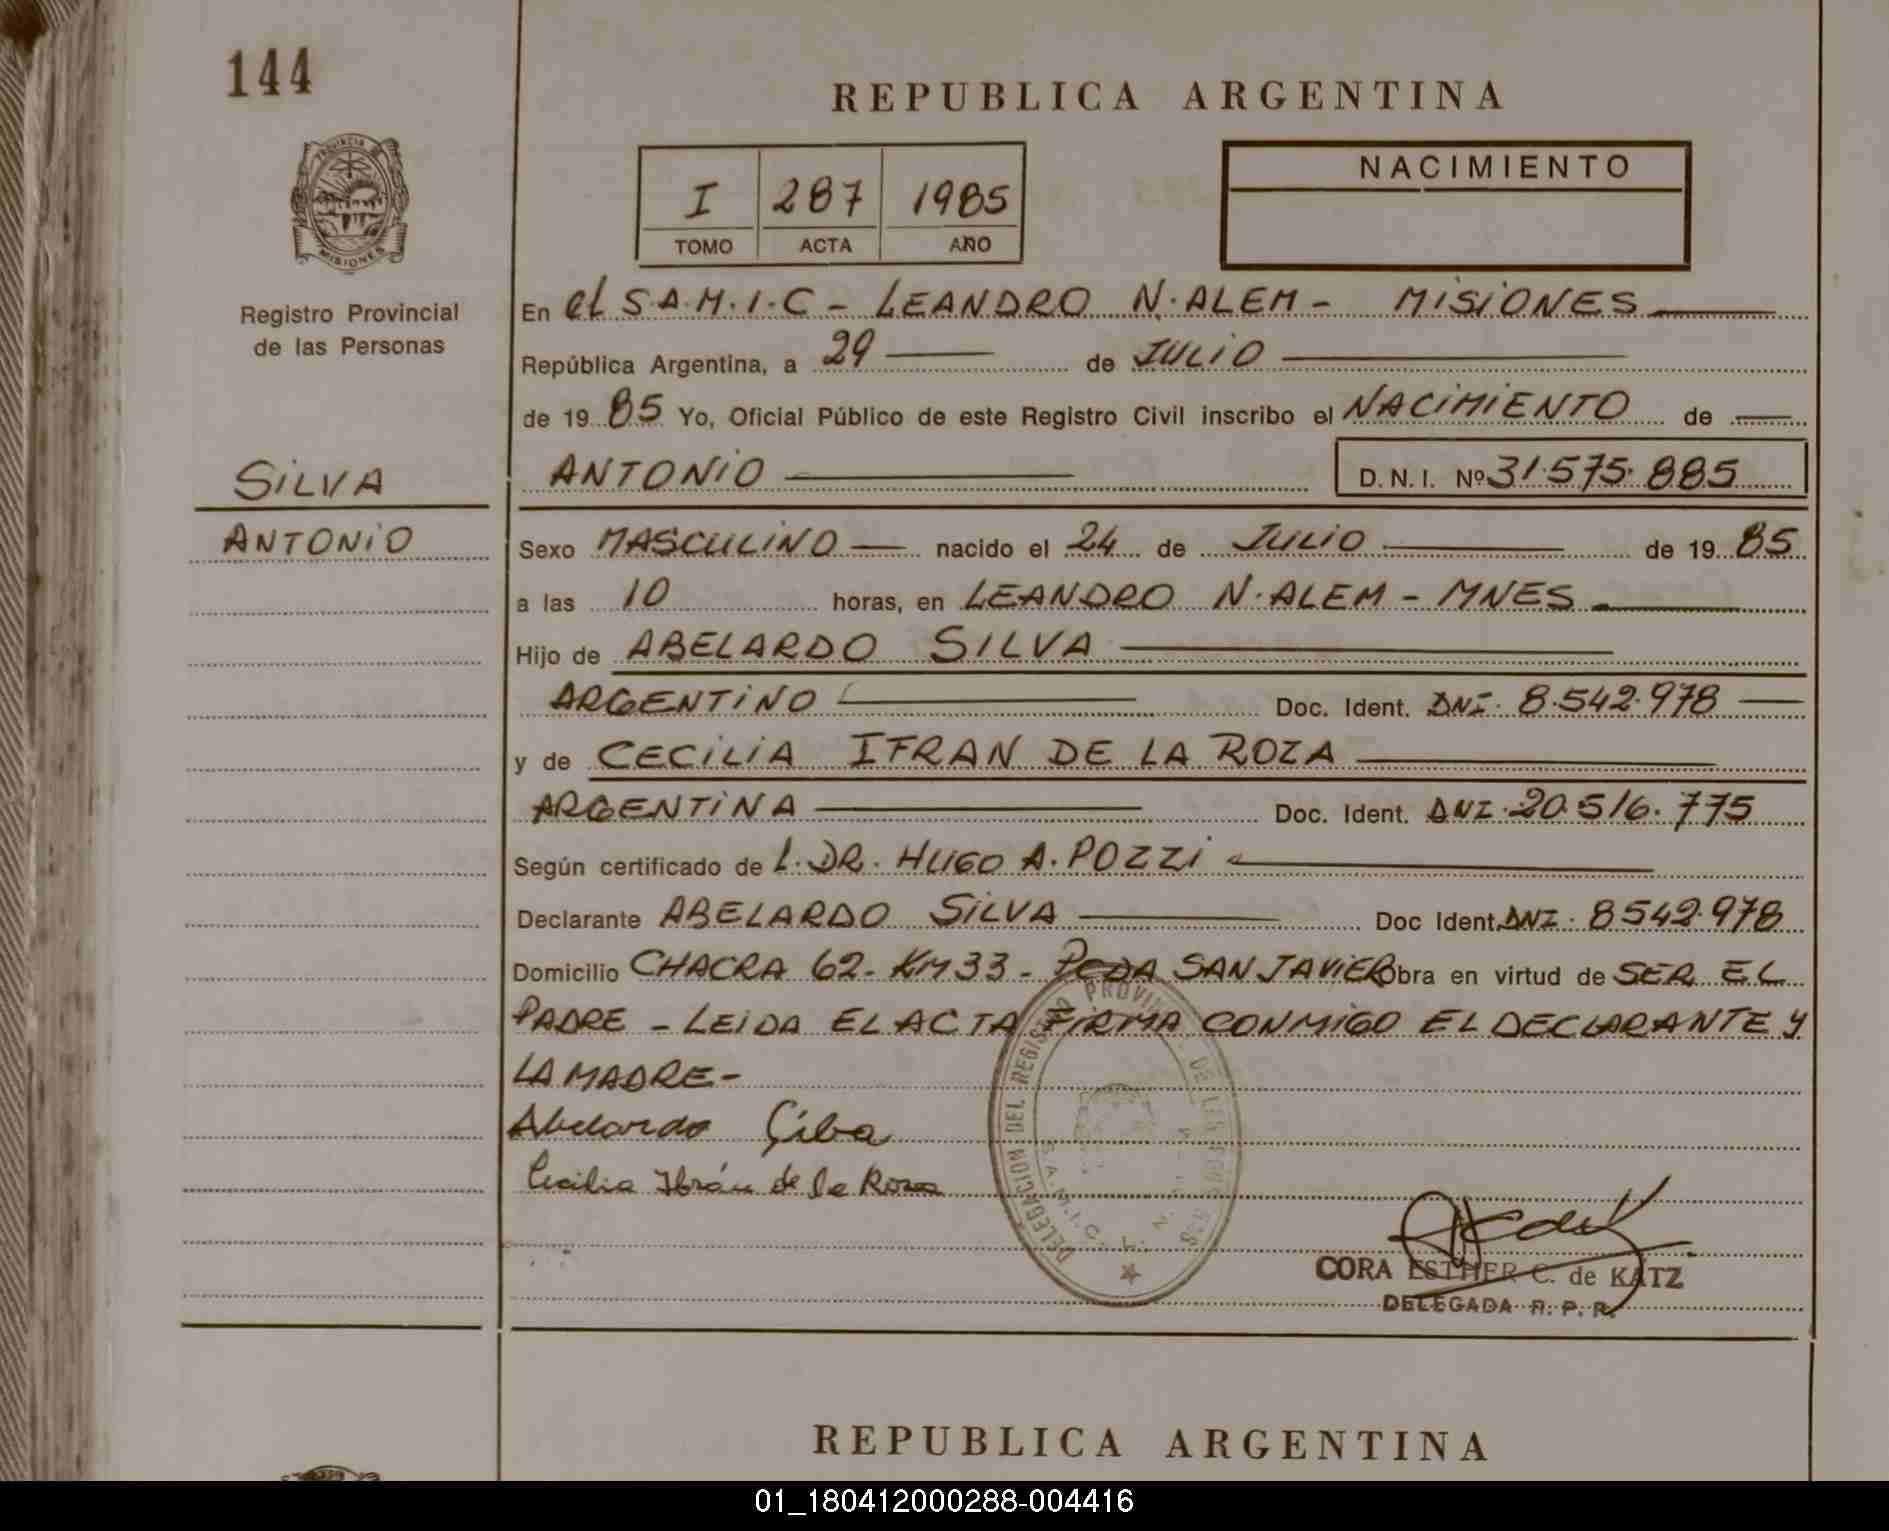 144
REPUBLICA ARGENTINA
PROVINCIA DE
MISIONES
Registro Provincial
de las Personas
I 287 1985
TOMO ACTA AÑO
NACIMIENTO
En el S.A.M.I.C - LEANDRO N. ALEM - MISIONES
República Argentina, a 29 de JULIO
de 19 85 Yo, Oficial Público de este Registro Civil inscribo el NACIMIENTO de
SILVA
ANTONIO
ANTONIO D.N.I. Nº 31.575.885
Sexo MASCULINO nacido el 24 de JULIO de 19 85
a las 10 horas, en LEANDRO N. ALEM - MNES
Hijo de ABELARDO SILVA
ARGENTINO Doc. Ident. DNI. 8.542.978
y de CECILIA IFRAN DE LA ROZA
ARGENTINA Doc. Ident. DNI. 20.516.775
Según certificado de L. DR. HUGO A. POZZI
Declarante ABELARDO SILVA Doc Ident. DNI. 8542.978
Domicilio CHACRA 62 - KM 33 - PCDA SAN JAVIER Obra en virtud de SER EL
PADRE - LEIDA EL ACTA FIRMA CONMIGO EL DECLARANTE Y
LA MADRE -
Abelardo Çilba
Cecilia Ibrán de la Rosa
DELEGACION DEL REGISTRO PROVINCIAL DE LAS PERSONAS
S.A.M.I.C. L. N.
CORA ESTHER C. de KATZ
DELEGADA R. P. P.
REPUBLICA ARGENTINA
01_180412000288-004416